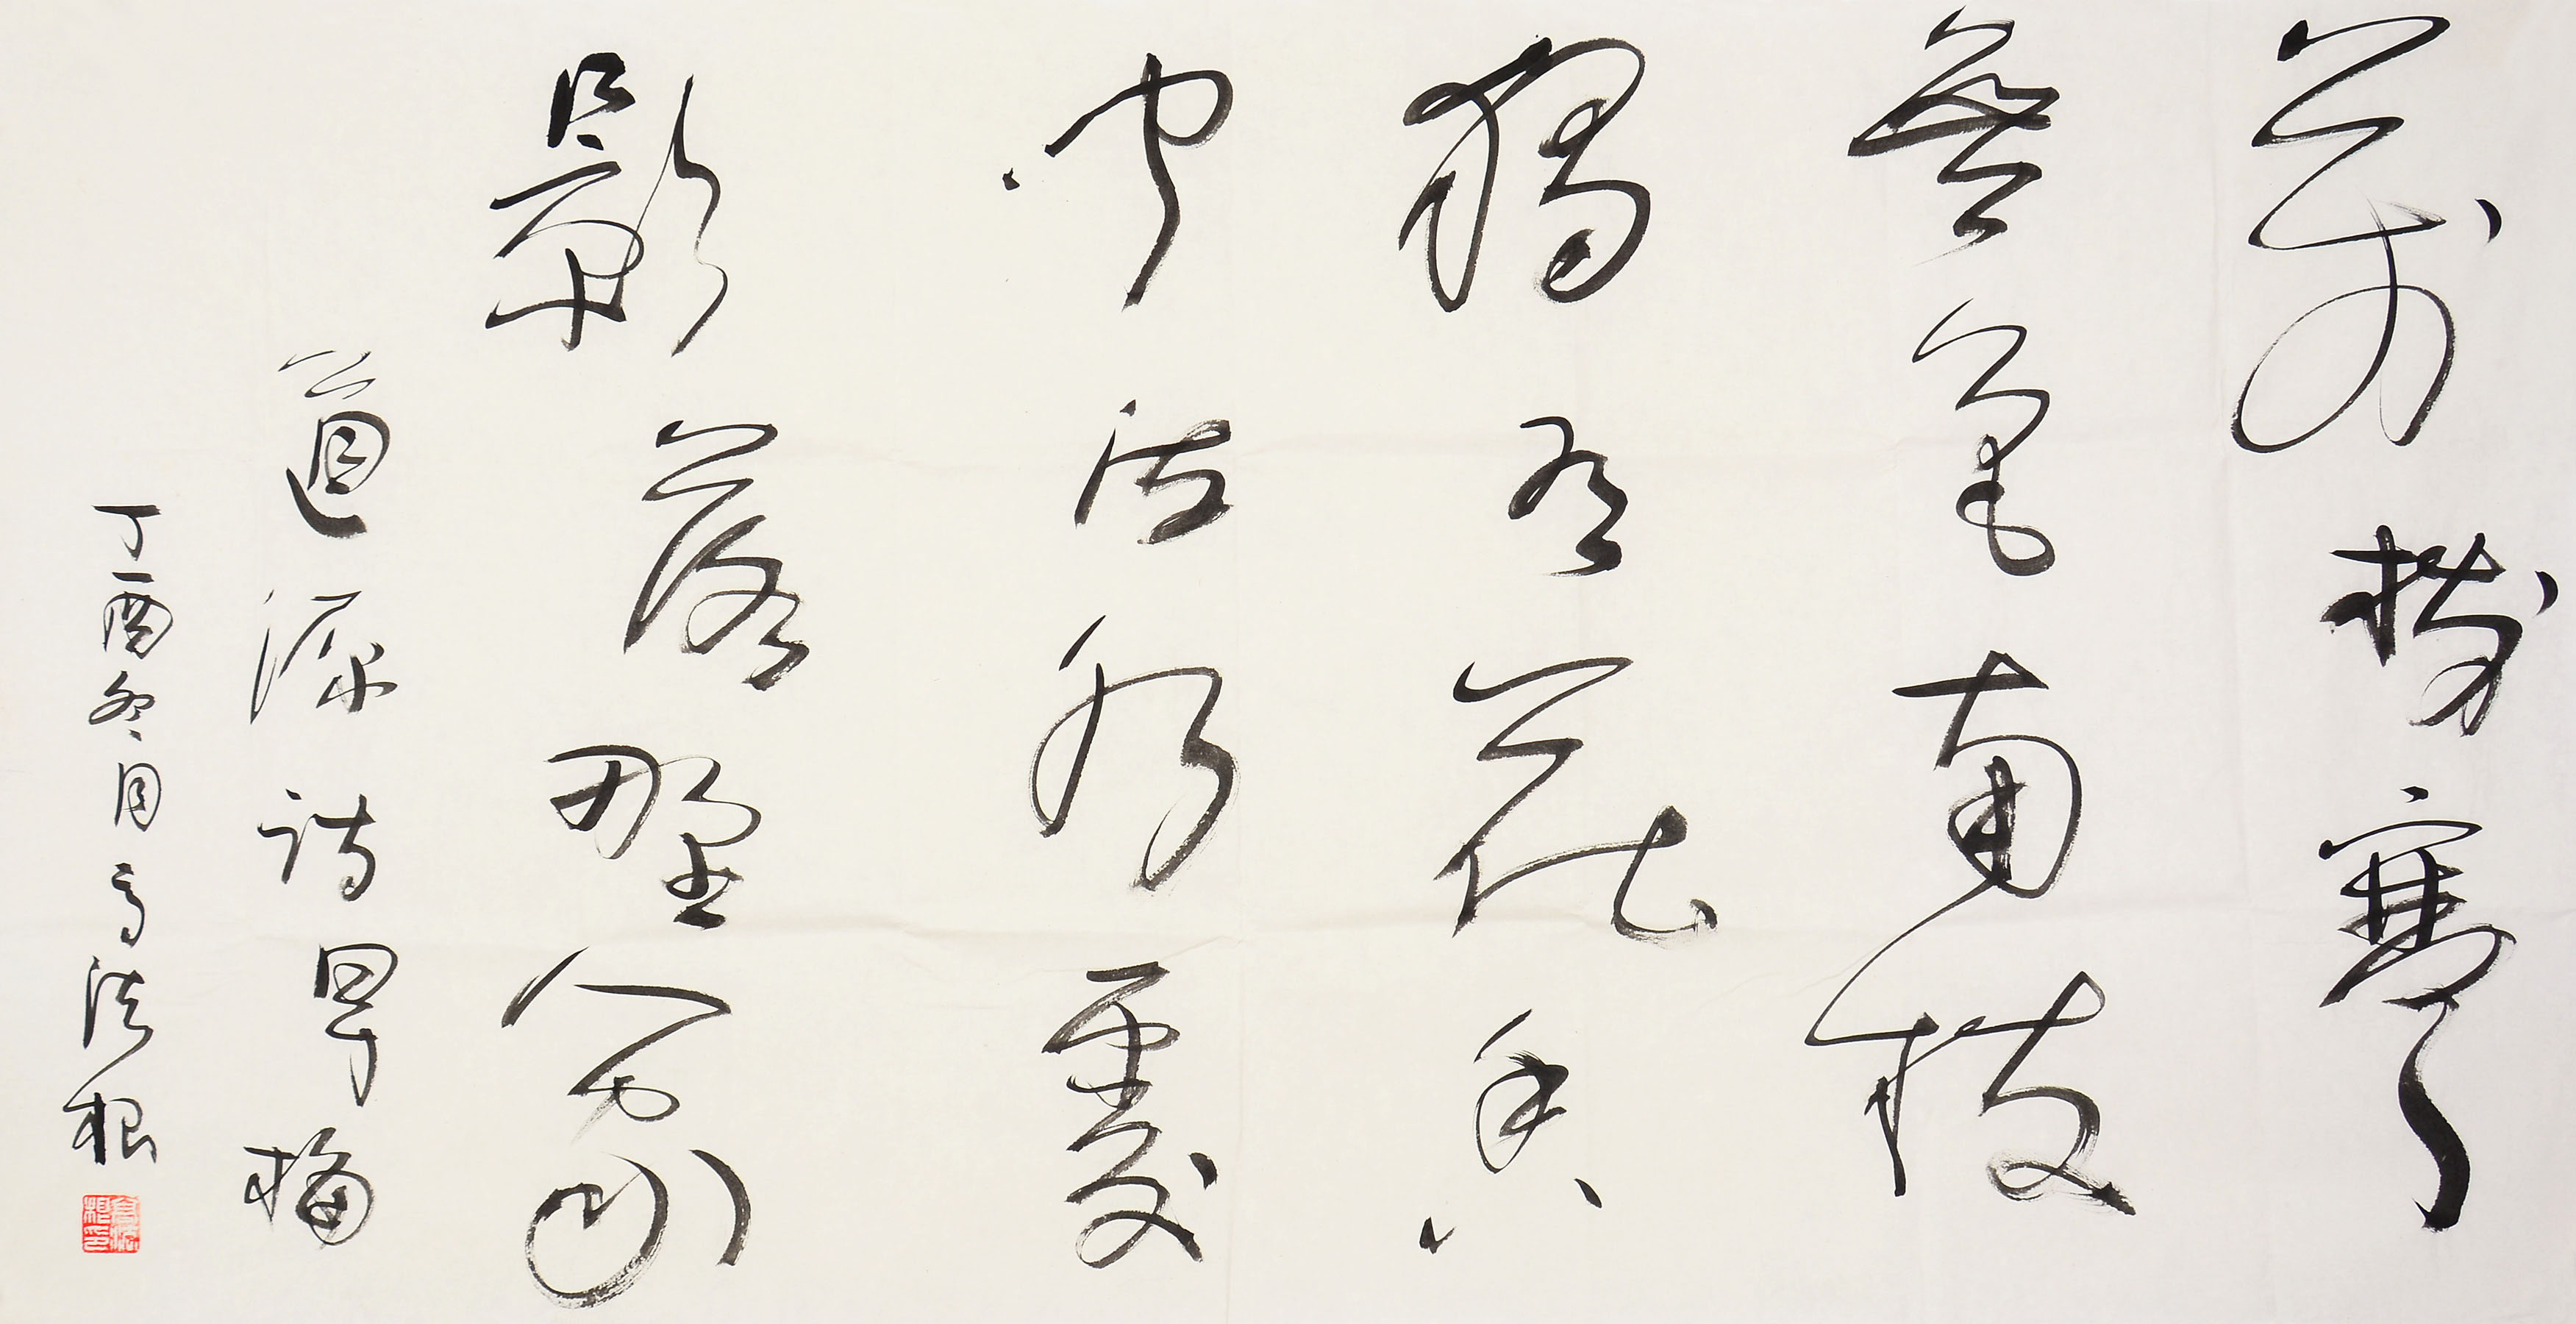 萬樹寒
無色南枝
獨有花香
聞流水處
影落野人家
道源詩早梅
丁酉冬月高法根
高法根印